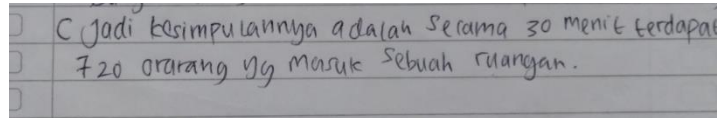 C Jadi kesimpulannya adalah Selama 30 menit terdapat
720 orarang yg masuk sebuah ruangan.